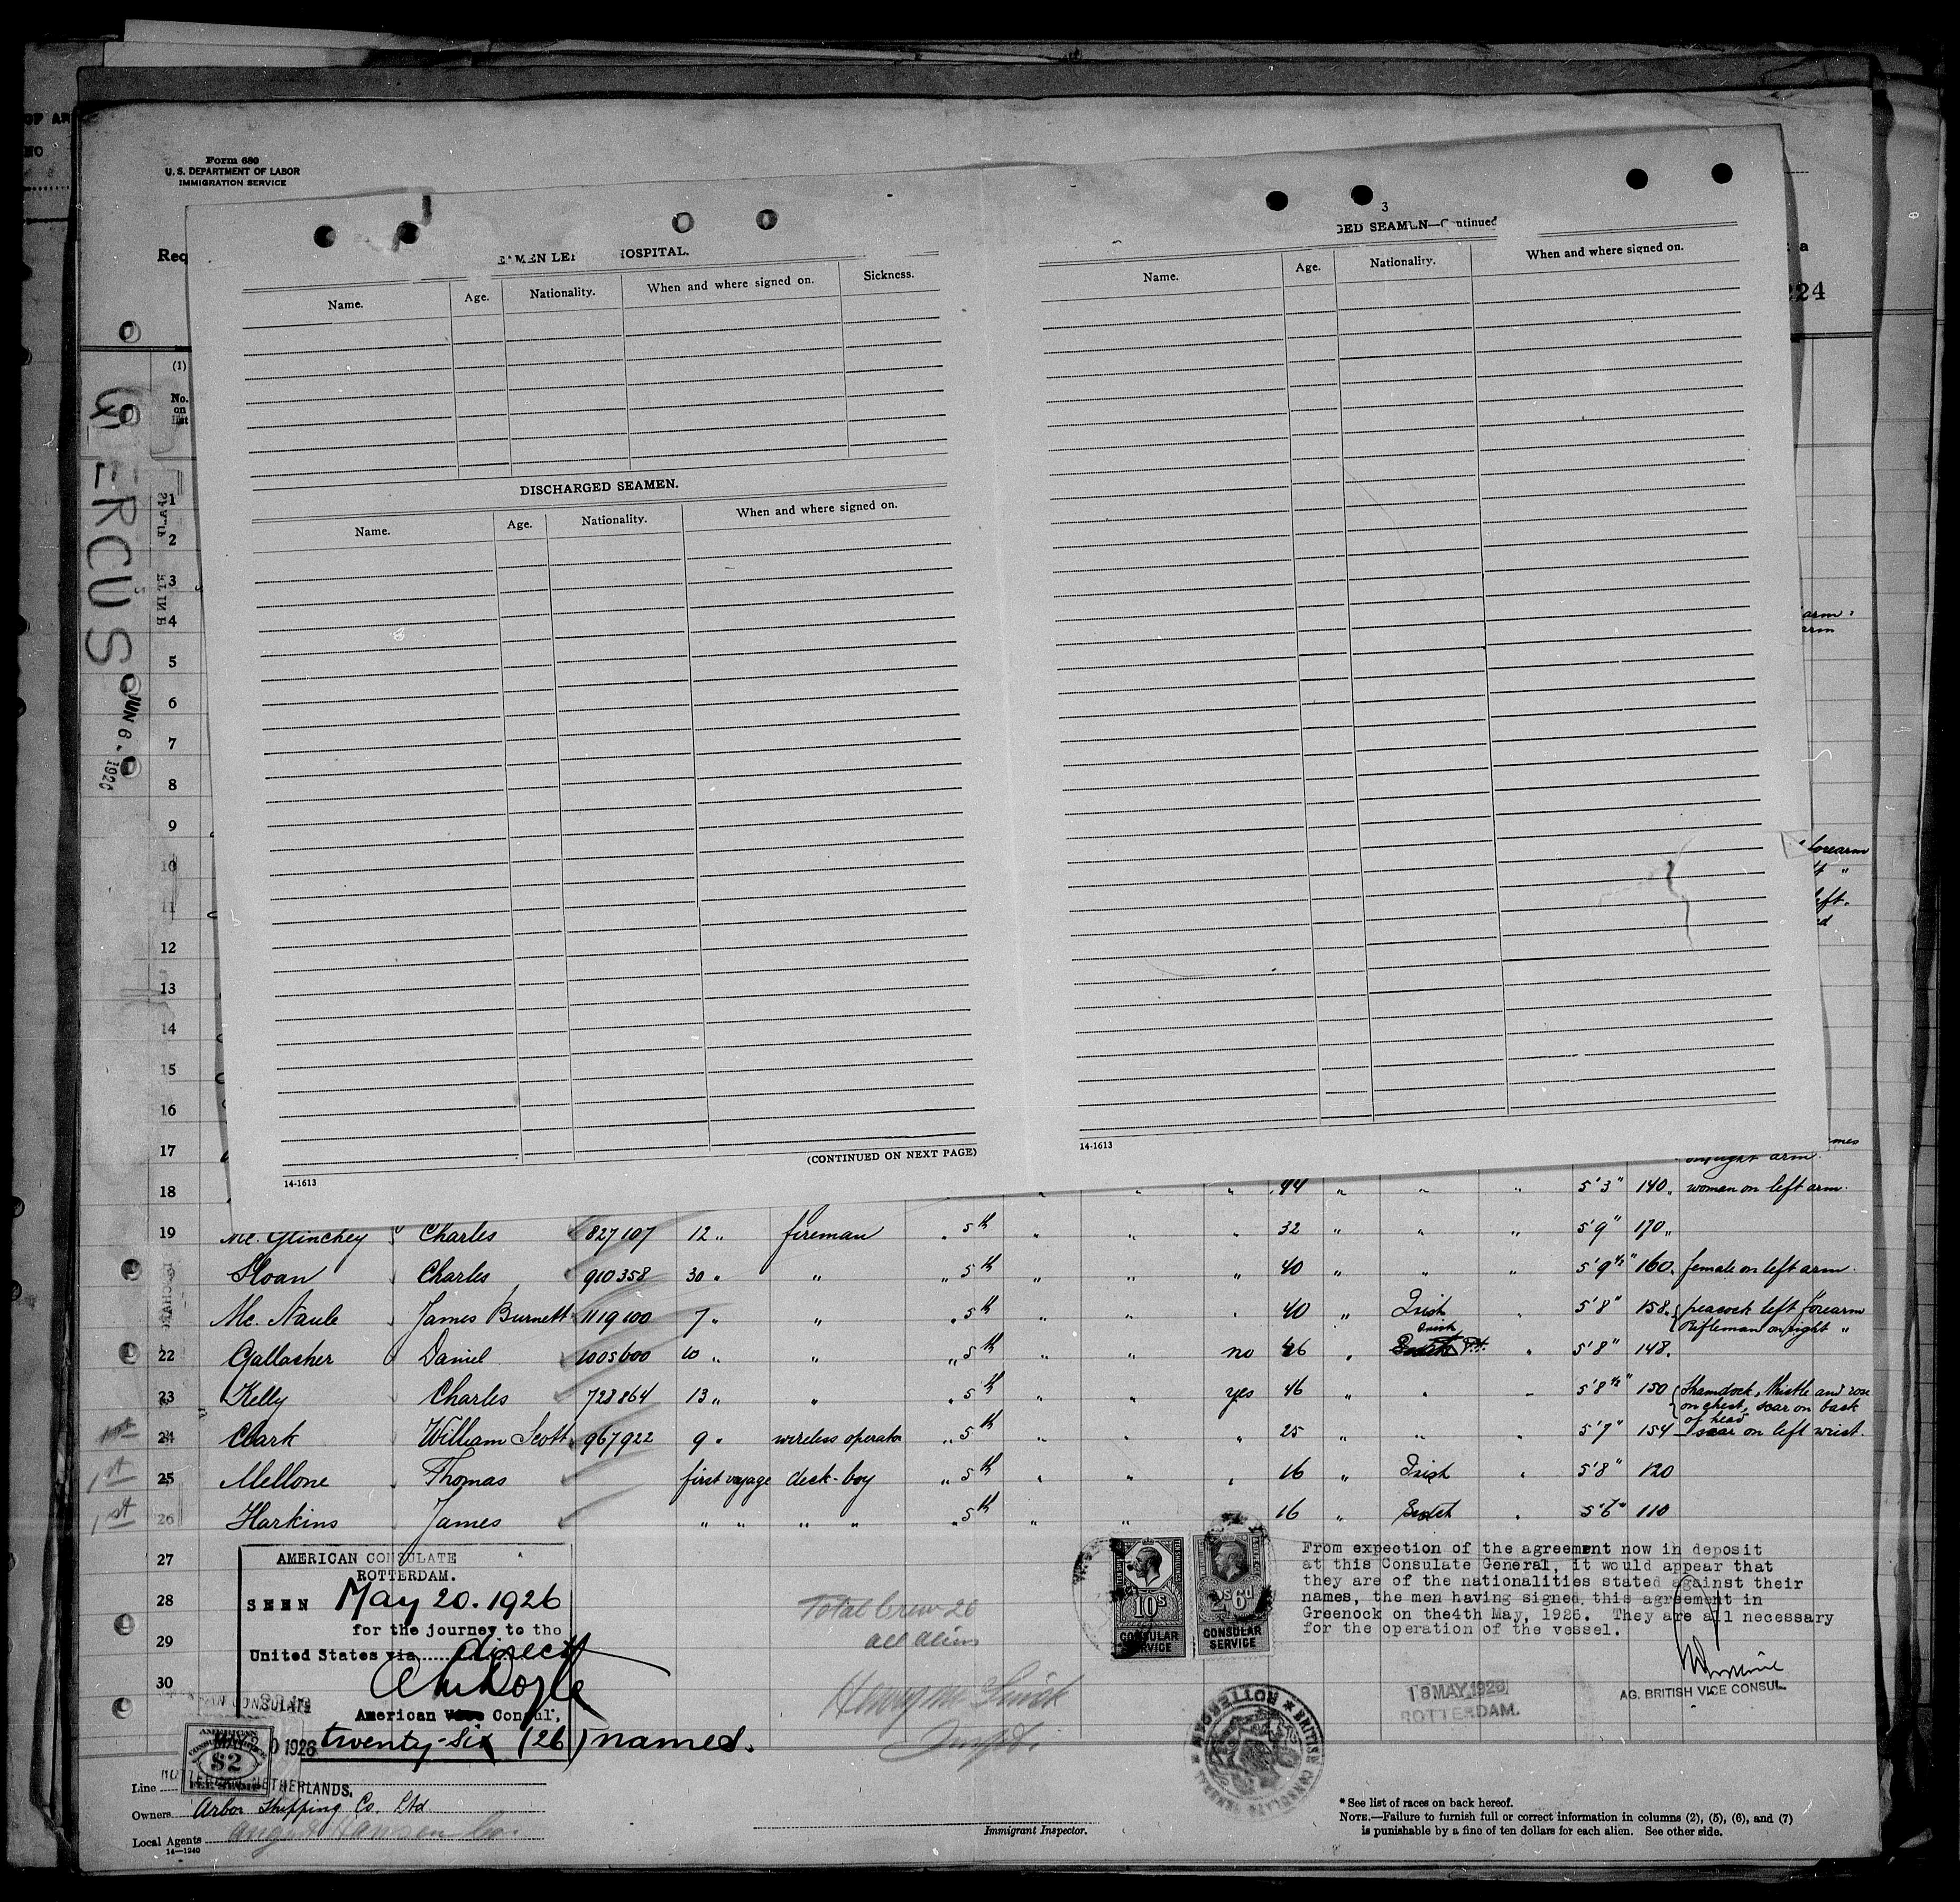 Form 680
U. S. DEPARTMENT OF LABOR
IMMIGRATION SERVICE
Req
224
(1)
No.
on
list
QUERCUS
JUN 6
3
GED SEAMEN—Continued
Name. Age. Nationality. When and where signed on.
HOSPITAL.
Name. Age. Nationality. When and where signed on. Sickness.
DISCHARGED SEAMEN.
Name. Age. Nationality. When and where signed on.
(CONTINUED ON NEXT PAGE)
14-1613
14-1613
1
2
3
4 arm
arm
5
6
7
8
9
10 forearm
11 left.
12
13
14
15
16
17
on right arm.
18 44 " " " 5'3" 140 " woman on left arm.
19 Mc. Glinchey Charles 827107 12 " fireman " 5th " " " 32 " " " 5'9" 170 "
Sloan Charles 910358 30 " " " 5th " " " 40 " " " 5'9½" 160 " female on left arm.
Mc. Naule James Burnett 1119100 7 " " " 5th " " " 40 " Irish " 5'8" 158 " peacock left forearm
Rifleman on right "
22 Gallagher Daniel 1005600 10 " " " 5th " " no 26 " Irish " 5'8" 148 "
23 Kelly Charles 728864 13 " " " 5th " " yes 46 " " " 5'8½" 150 Shamrock, thistle and rose
on chest, scar on back
of head
1st 24 Clark William Scott 967922 9 " wireless operator " 5th " " " 25 " " " 5'7" 154 scar on left wrist.
1st 25 Mellone Thomas first voyage deck-boy " 5th " " " 16 " Irish " 5'8" 120
1st 26 Harkins James " " " " " 5th " " 16 " Scotch " 5'6" 110
27
28
29
30
AMERICAN CONSULATE
ROTTERDAM.
SEEN May 20. 1926
for the journey to the
United States via direct
American Vice Consul,
twenty-six (26) names.
AMERICAN
$2
1926
ROTTERDAM, NETHERLANDS.
Total Crew 26
all aliens
10s
CONSULAR
SERVICE
2s6d
CONSULAR
SERVICE
From expection of the agreement now in deposit
at this Consulate General, it would appear that
they are of the nationalities stated against their
names, the men having signed this agreement in
Greenock on the4th May, 1926. They are all necessary
for the operation of the vessel.
AG. BRITISH VICE CONSUL.
18 MAY 1926
ROTTERDAM.
BRITISH CONSULATE GENERAL ROTTERDAM
Line
Owners Arbor Shipping Co. Ltd
Local Agents
14—1240
Immigrant Inspector.
* See list of races on back hereof.
NOTE.—Failure to furnish full or correct information in columns (2), (5), (6), and (7)
is punishable by a fine of ten dollars for each alien. See other side.